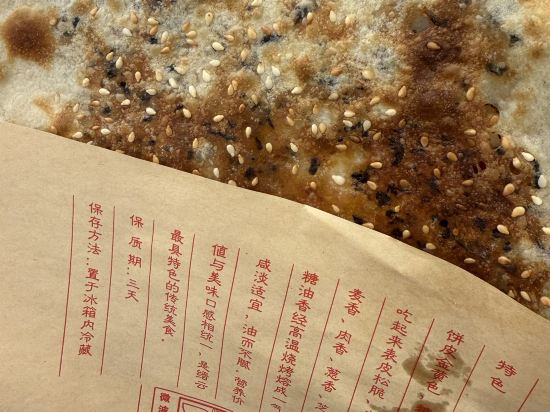 特色
饼皮金黄色
吃起来表皮松脆
麦香、肉香、葱香、芝
糖油香经高温烧烤焙成一
咸淡适宜，油而不腻。营养价
值与美味口感相统一，是缙云
最具特色的传统美食。
保质期：三天
保存方法：置于冰箱内冷藏
微波